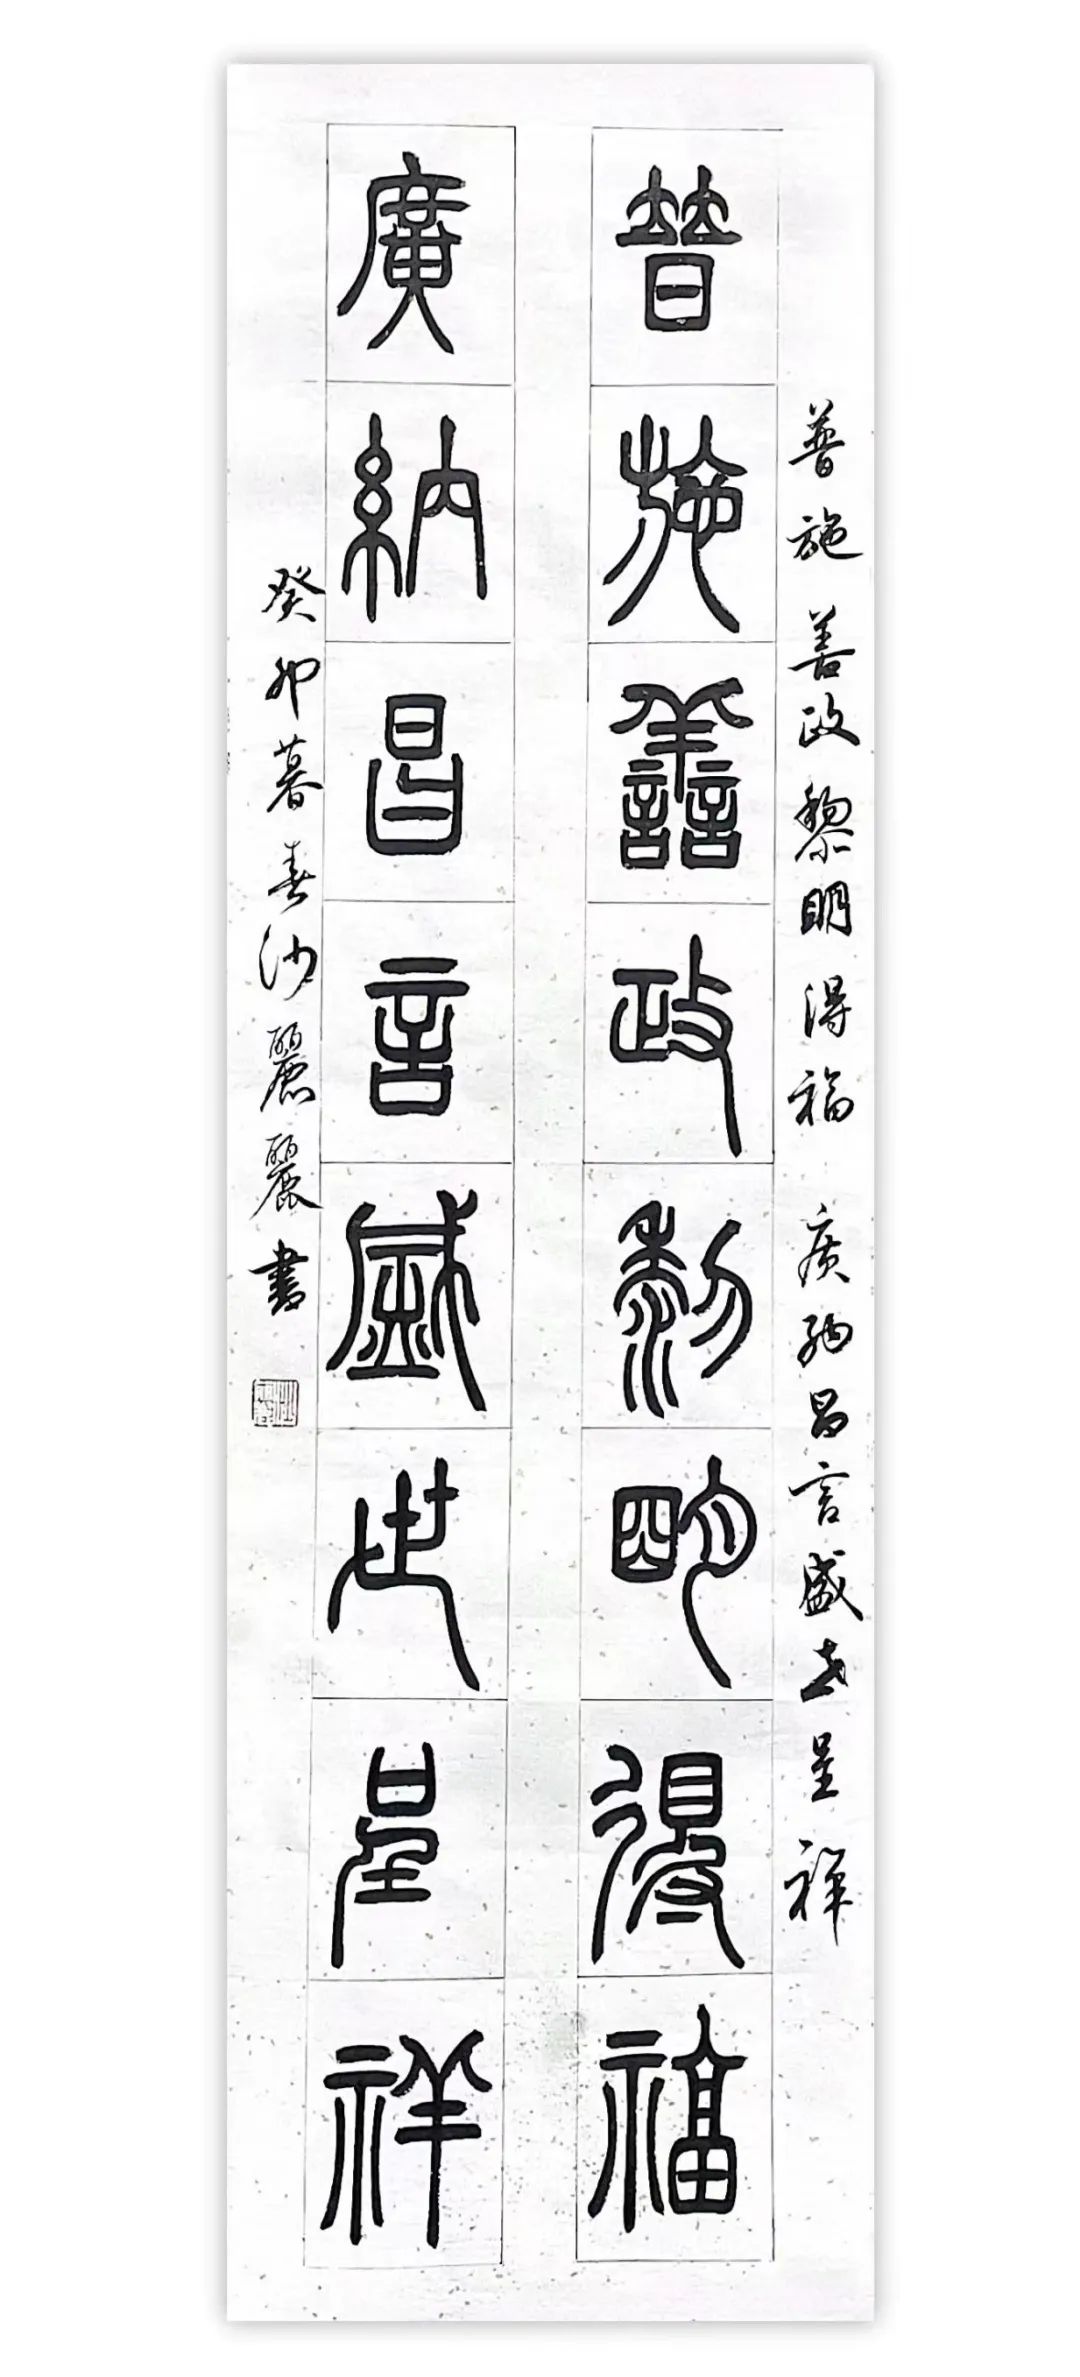 普施善政黎明得福 廣納昌言盛世呈祥
普施善政黎明得福
廣納昌言盛世呈祥
癸卯暮春沙麗麗書